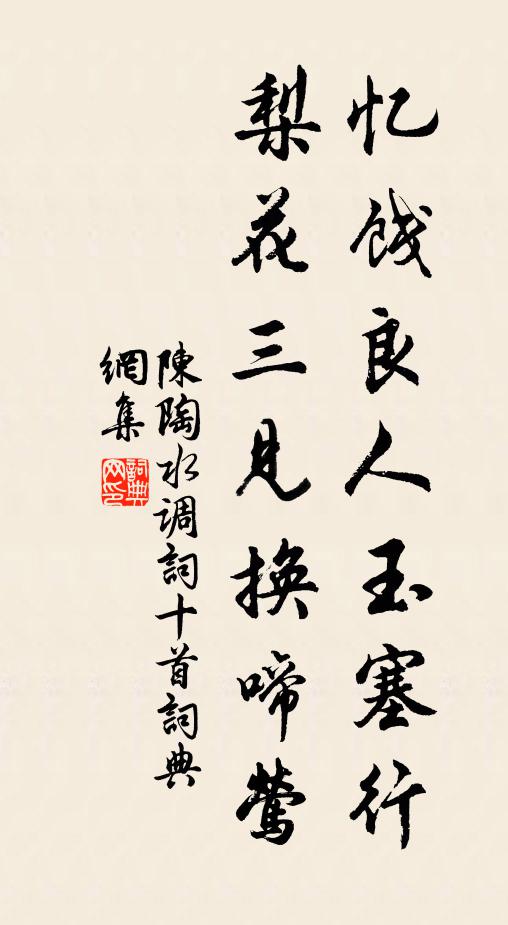 忆饯良人玉塞行
梨花三见换啼莺
陳陶水调詞十首詞典
網集
詞典
网印